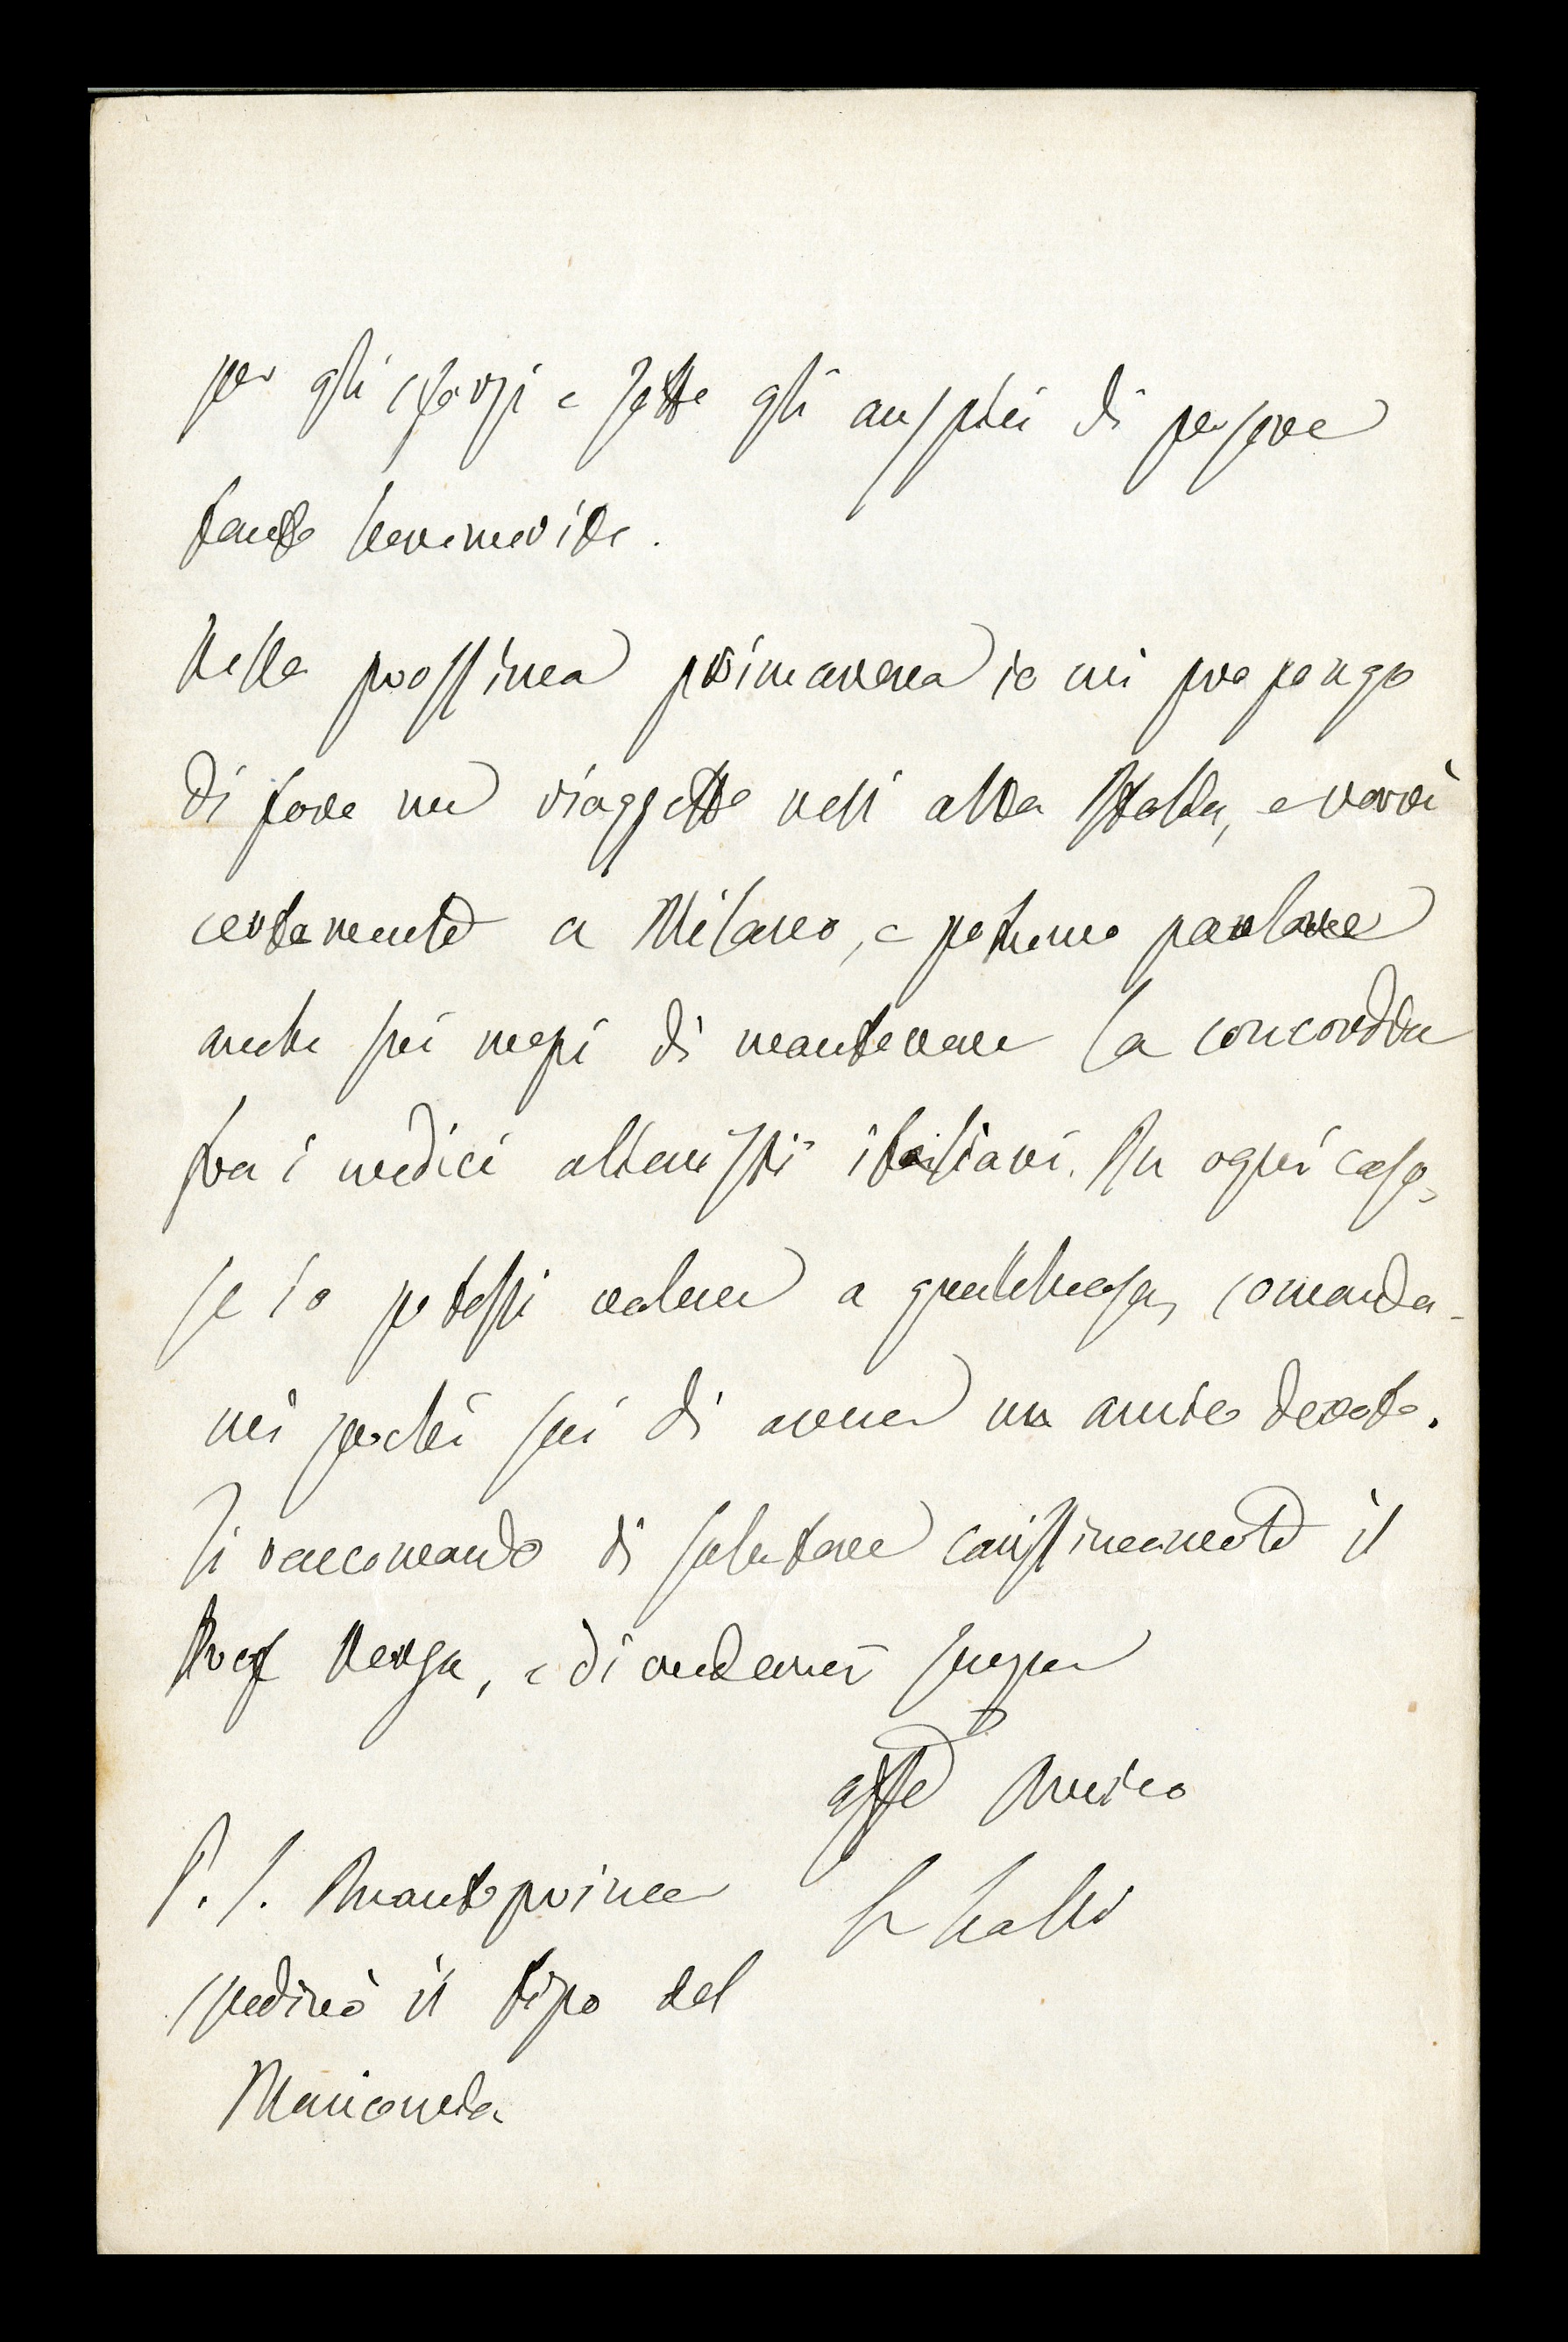 per gli sforzi e sotto gli auspici di persone
tanto benemerite.
Nella prossima primavera io mi propongo
di fare un viaggetto nell'alta Italia, e verrò
certamente a Milano, e potremo parlare
anche sui mezzi di mantenere la concordia
fra i medici alienisti italiani. In ogni caso,
se io potessi valere a qualchecosa, comanda-
mi perchè sai di avere un amico devoto.
Ti raccomando di salutare carissimamente il
Prof Verga, e di credermi sempre
aff.e Amico
P. S. Quanto prima
spedirò il tipo del
Manicomio